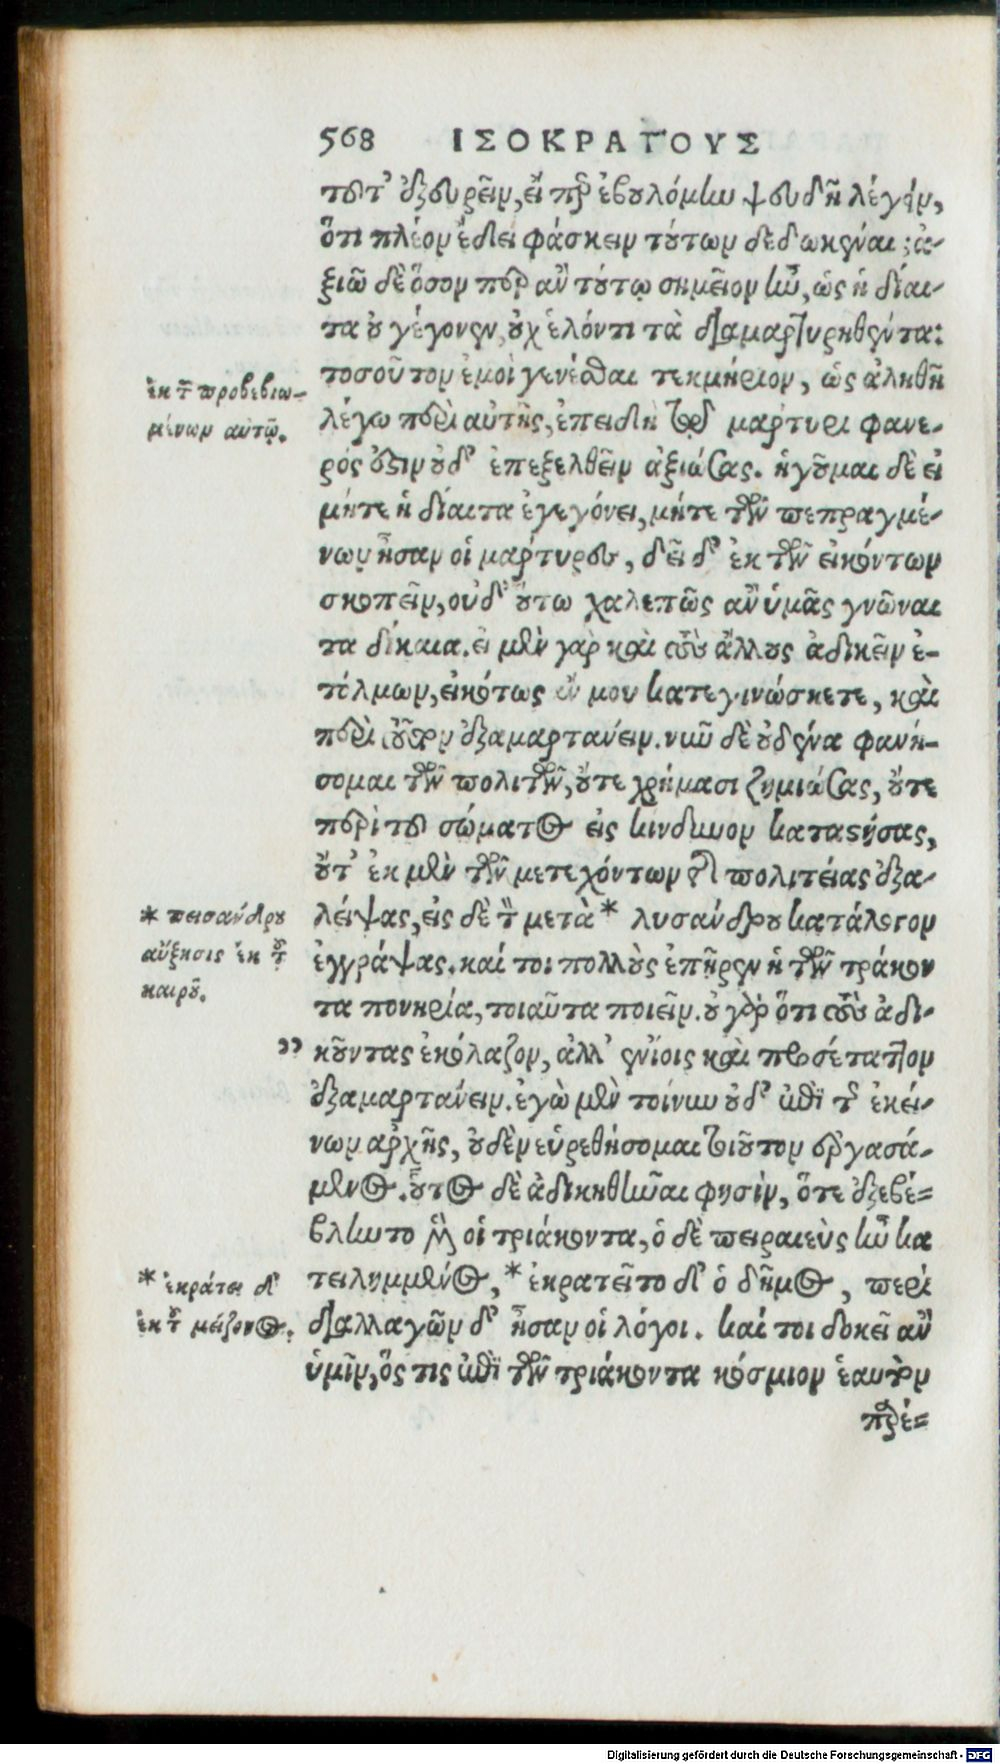 568 ΙΣΟΚΡΑΤΟΥΣ
τοῦτ' ἐξευρεῖν, εἴ περ ἐβουλόμην ψευδῆ λέγειν,
ὅτι πλέον ἔδει φάσκειν τούτων δεδωκέναι; ἀ-
ξιῶ δὲ ὅσον περ ἂν τούτῳ σημεῖον ἦν, ὡς ἡ δίαι-
τα οὐ γέγονεν, οὐχ ἑλόντι τὰ διαμαρτυρηθέντα:
τοσοῦτον ἐμοὶ γενέσθαι τεκμήριον, ὡς ἀληθῆ
ἐκ τ προβεβιω-
μένων αὐτῷ.
λέγω περὶ αὐτῆς, ἐπειδὴ τῷ μάρτυρι φανε-
ρός ἐστιν οὐδ' ἐπεξελθεῖν ἀξιώσας. ἡγοῦμαι δὲ εἰ
μήτε ἡ δίαιτα ἐγεγόνει, μήτε τῶν πεπραγμέ-
νων ἦσαν οἱ μάρτυρες, δεῖ δ' ἐκ τῶν εἰκότων
σκοπεῖν, οὐδ' οὕτω χαλεπῶς ἂν ὑμᾶς γνῶναι
τὰ δίκαια. εἰ μὲν γὰρ καὶ τοὺς ἄλλους ἀδικεῖν ἐ-
τόλμων, εἰκότως ἄν μου κατεγινώσκετε, καὶ
περὶ τοῦτον ἐξαμαρτάνειν. νῦν δὲ οὐδένα φανή-
σομαι τῶν πολιτῶν, οὔτε χρήμασι ζημιώσας, οὔτε
περὶ τοῦ σώματος εἰς κίνδυνον καταστήσας,
οὔτ' ἐκ μὲν τῶν μετεχόντων τῆς πολιτείας ἐξα-
* πεισάνδρου
αὔξησις ἐκ τοῦ
καιροῦ.
λείψας, εἰς δὲ τὸν μετὰ * λυσάνδρου κατάλογον
ἐγγράψας. καί τοι πολλοὺς ἐπῇρεν ἡ τῶν τριάκον
τα πονηρία, τοιαῦτα ποιεῖν. οὐ γὰρ ὅτι τοὺς ἀδι-
" κοῦντας ἐκόλαζον, ἀλλ' ἐνίοις καὶ προσέταττον
ἐξαμαρτάνειν. ἐγὼ μὲν τοίνυν οὐδ' ἐπὶ τῆς ἐκεί-
νων ἀρχῆς, οὐδὲν εὑρεθήσομαι τοιοῦτον ἐργασά-
μενος. οὗτος δὲ ἀδικηθῆναί φησιν, ὅτε ἐξεβέ=
βληντο μὲν οἱ τριάκοντα, ὁ δὲ πειραιεὺς ἦν κα
* ἐκράτει δ'
ἐκ τοῦ μείζονος.
τειλημμένος, * ἐκρατεῖτο δ' ὁ δῆμος, περὶ
διαλλαγῶν δ' ἦσαν οἱ λόγοι. καί τοι δοκεῖ ἂν
ὑμῖν, ὅς τις ἐπὶ τῶν τριάκοντα κόσμιον ἑαυτὸν
παρέ=
Digitalisierung gefördert durch die Deutsche Forschungsgemeinschaft - DFG